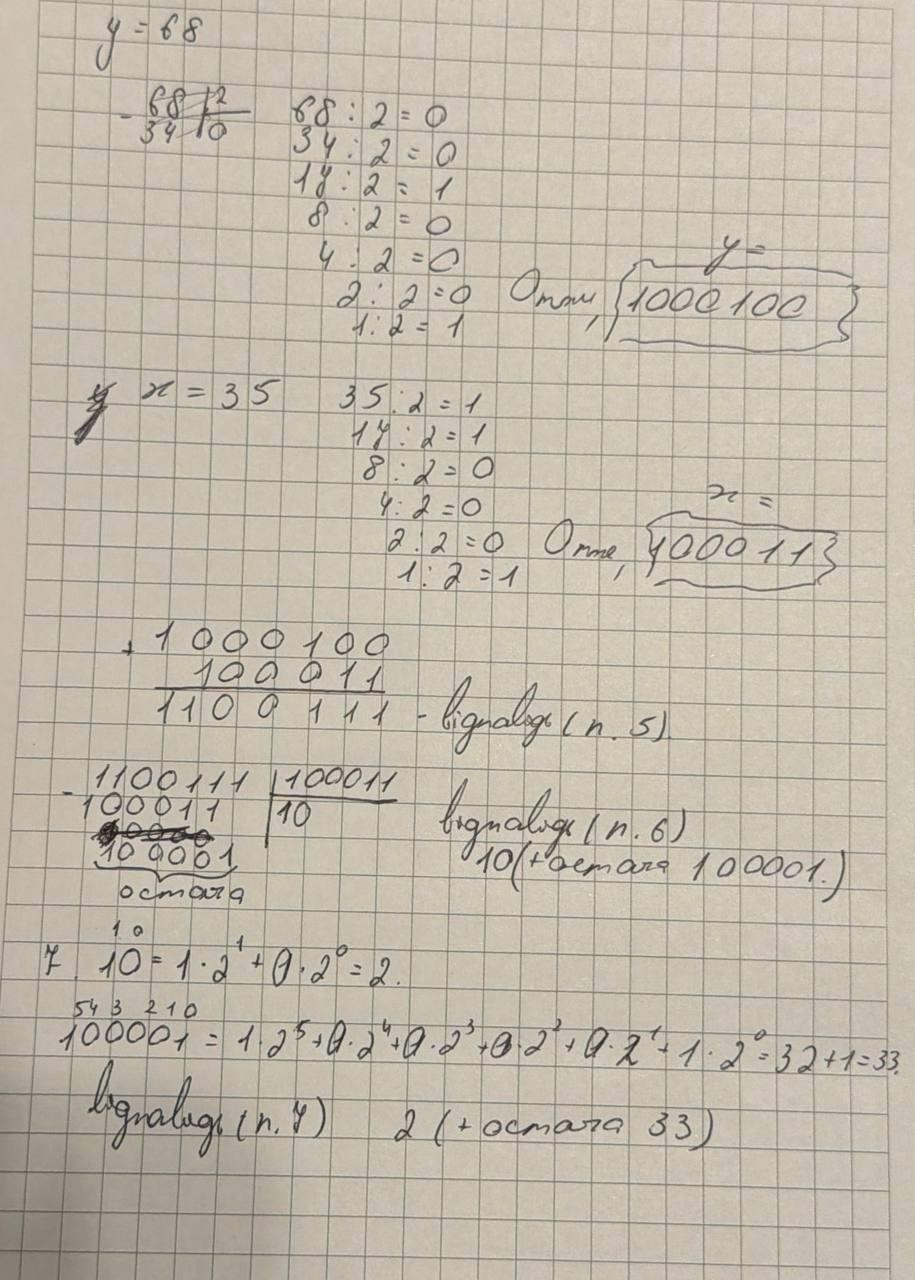 y = 68
68 : 2 = 0
34 : 2 = 0
17 : 2 = 1
8 : 2 = 0
4 : 2 = 0
2 : 2 = 0
1 : 2 = 1
Отже, y = {1000100}
x = 35
35 : 2 = 1
17 : 2 = 1
8 : 2 = 0
4 : 2 = 0
2 : 2 = 0
1 : 2 = 1
Отже, x = {100011}
+ 1000100
100011
1100111 - відповідь (п. 5)
- 1100111 | 100011
100011 | 10
100001
остача
відповідь (п. 6)
10 (+ остача 100001.)
1 0
7. 10 = 1·2¹ + 0·2⁰ = 2.
5 4 3 2 1 0
100001 = 1·2⁵ + 0·2⁴ + 0·2³ + 0·2² + 0·2¹ + 1·2⁰ = 32 + 1 = 33.
відповідь (п. 7) 2 (+ остача 33)